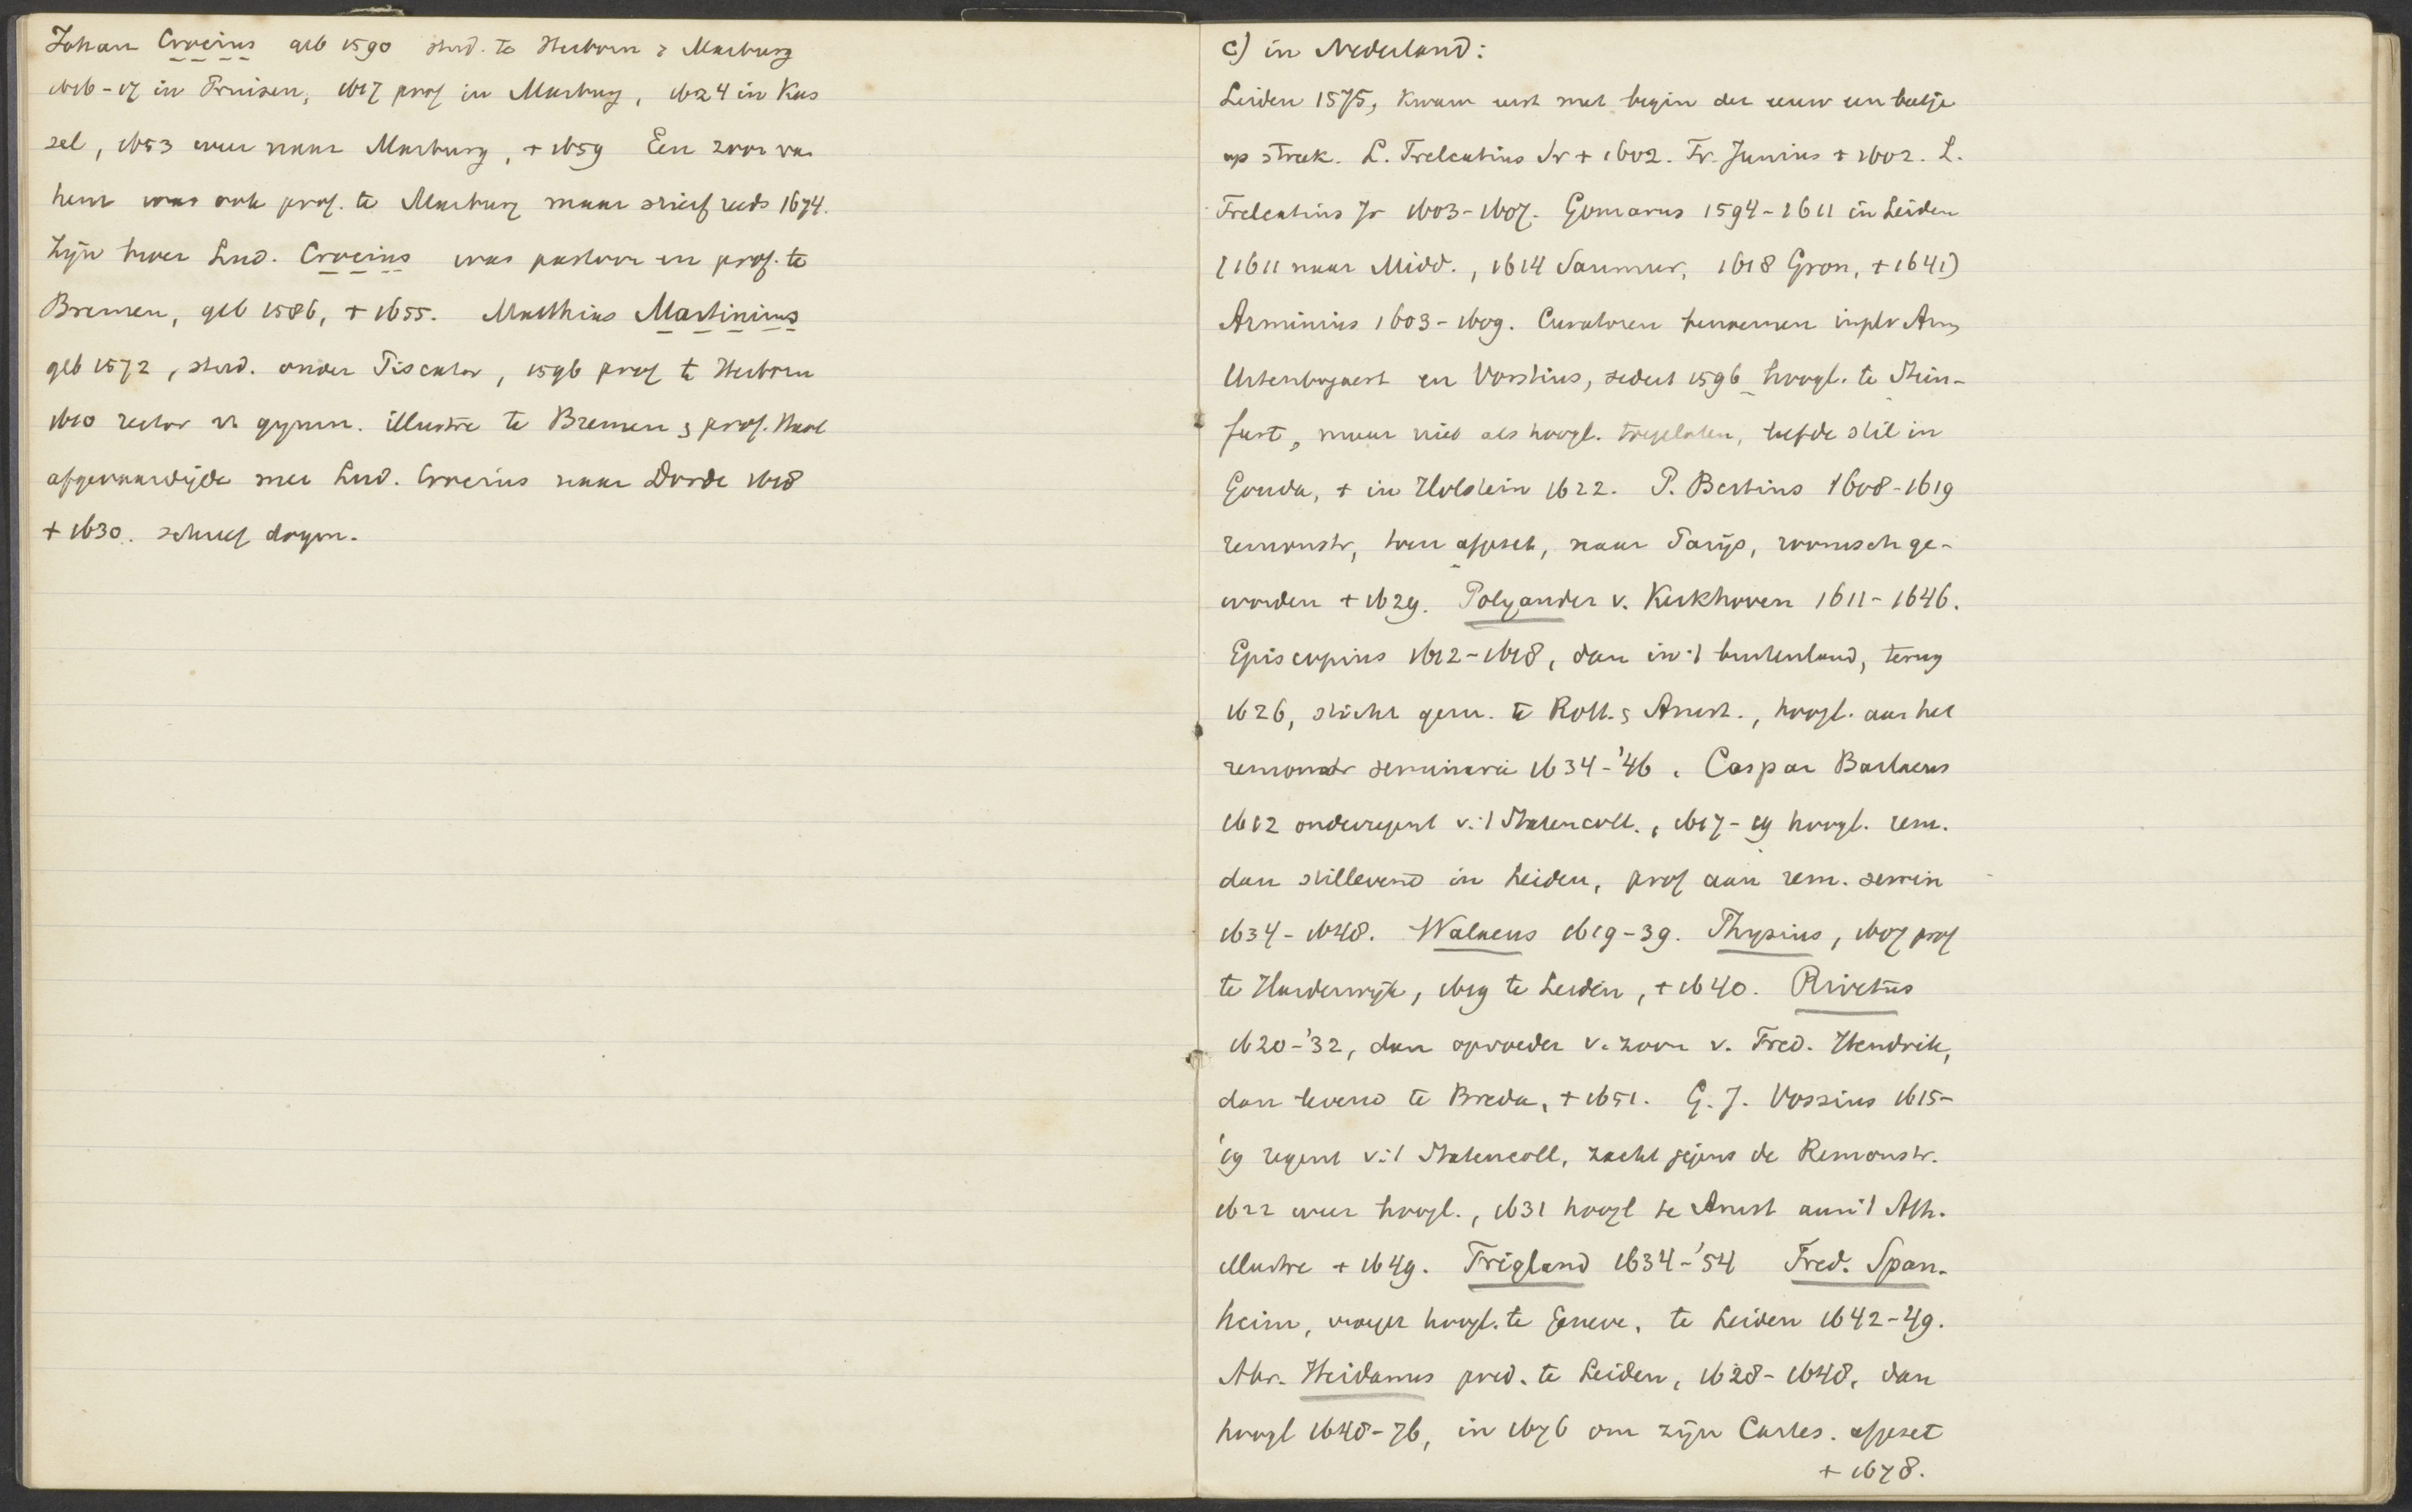 Johan Crocius geb 1590 stud. te Herborn & Marburg
1616-17 in Pruisen, 1617 prof in Marburg, 1624 in Kas
sel, 1653 weer naar Marburg, + 1659 Een zoon van
hem was ook prof. te Marburg maar stierf reeds 1674.
Zijn broer Lud. Crocius was pastoor en prof. te
Bremen, geb 1586, + 1655. Matthias Martinius
geb 1572, stud. onder Piscator, 1596 prof te Herborn
1610 rector vh gymn. illustre te Bremen & prof. Werd
afgevaardigde met Lud. Crocius naar Dordt 1618
+ 1630. schreef dogm.
c) in Nederland:
Leiden 1575, kwam eerst met begin der eeuw een beetje
op streek. L. Trelcatius Sr + 1602. Fr. Junius + 1602. L.
Trelcatius Jr 1603-1607. Gomarus 1594-1611 in Leiden
(1611 naar Midd., 1614 Saumur, 1618 Gron, + 1641)
Arminius 1603-1609. Curatoren benoemen inpl v Arm,
Uitenbogaert en Vorstius, sedert 1596 hoogl. te Stein-
furt, maar niet als hoogl. toegelaten, leefde stil in
Gouda, + in Holstein 1622. P. Bertius 1608-1619
remonstr, toen afgezet, naar Parijs, roomsch ge-
worden + 1629. Polyander v. Kerkhoven 1611-1646.
Episcopius 1612-1618, dan in 't buitenland, terug
1626, sticht gem. te Rott. & Amst., hoogl. aan het
remonstr seminarie 1634-'46. Caspar Barlaeus
1612 onderregent v. 't Statencoll., 1617-19 hoogl. rem.
dan stillevend in Leiden, prof aan rem. semin
1634-1648. Walaeus 1619-39. Thysius, 1607 prof
te Harderwijk, 1619 te Leiden, + 1640. Rivetus
1620-'32, dan opvoeder v. zoon v. Fred. Hendrik,
dan levend te Breda, + 1651. G. J. Vossius 1615-
'19 regent v. 't Statencoll, zacht jegens de Remonstr.
1622 weer hoogl., 1631 hoogl te Amst aan 't Ath.
illustre + 1649. Trigland 1634-'54 Fred. Span-
heim, vroeger hoogl. te Geneve, te Leiden 1642-'49.
Abr. Heidanus pred. te Leiden, 1628-1648, dan
hoogl 1648-76, in 1676 om zijn Cartes. afgezet
+ 1678.